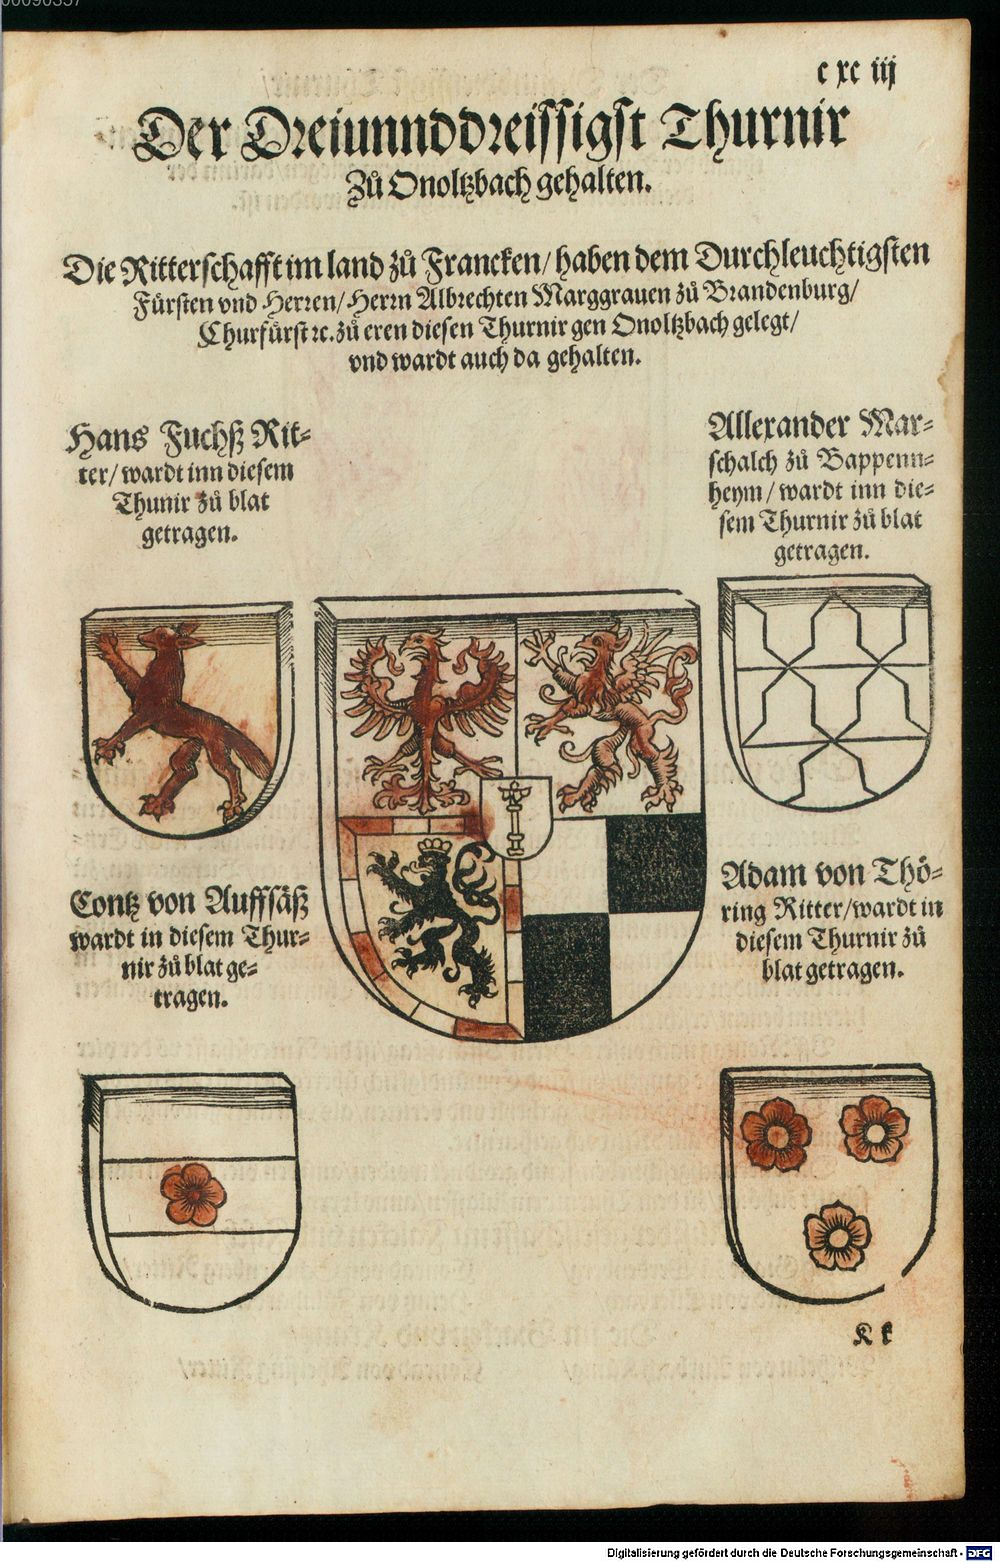 00090357
c xc iij
Der Dreiunnddreissigst Thurnir
Zů Onoltzbach gehalten.
Die Ritterschafft im land zů Francken/ haben dem Durchleuchtigsten
Fürsten vnd Herren/ Herrn Albrechten Marggrauen zů Brandenburg/
Churfürst ꝛc. zů eren diesen Thurnir gen Onoltzbach gelegt/
vnd wardt auch da gehalten.
Hans Fuchß Rit-
ter/ wardt inn diesem
Thunir zů blat
getragen.
Allexander Mar-
schalch zů Bappenn-
heym/ wardt inn die-
sem Thurnir zů blat
getragen.
Contz von Auffsäß
wardt in diesem Thur-
nir zů blat ge-
tragen.
Adam von Thö-
ring Ritter/ wardt in
diesem Thurnir zů
blat getragen.
K k
Digitalisierung gefördert durch die Deutsche Forschungsgemeinschaft - DFG